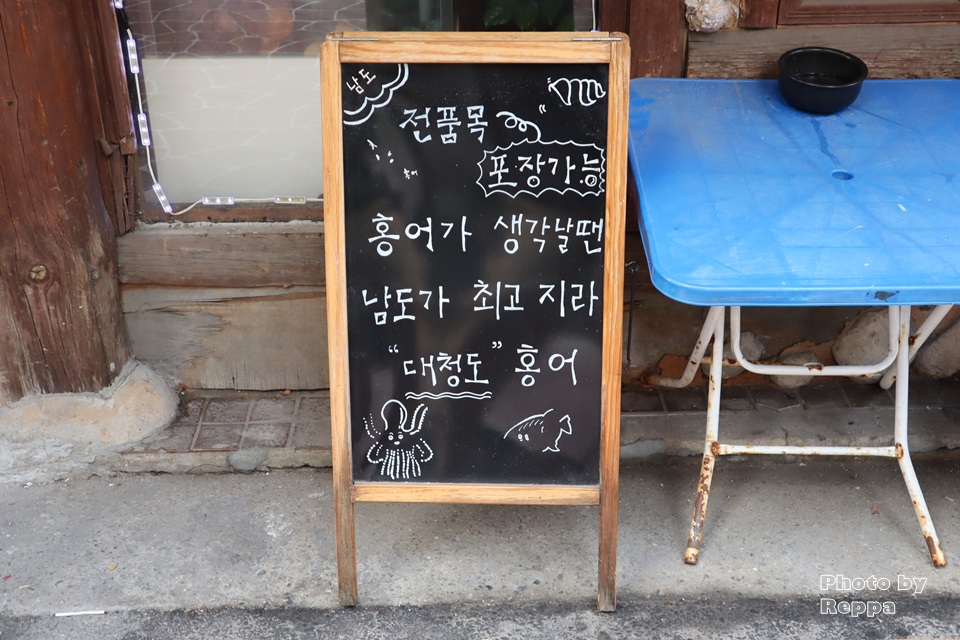 남도
전품목
포장가능
홍어가 생각날땐
남도가 최고 지라
“대청도” 홍어
Photo by
Reppa